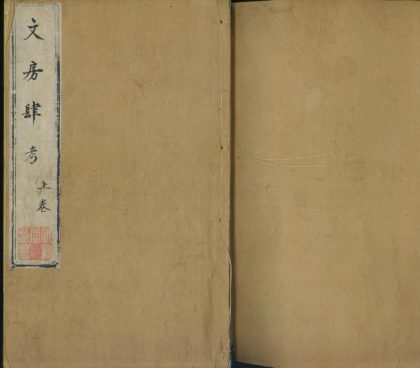 文房肆考
上卷